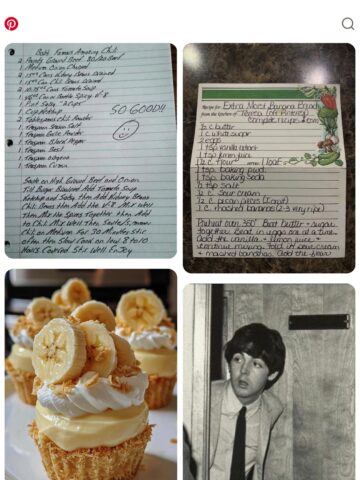 Bob's Famous Amazing Chili
2 Pounds Ground Beef 80/20 Best
1 Medium Onion Chopped
2 15oz Cans Kidney Beans Drained
1 15oz Can Chili Beans Drained
2 10.75oz Cans Tomato Soup
1 Cup Ketchup
SO GOOD!!
2 Tablespoons Chili Powder
1 Teaspoon Garlic Powder
1 Teaspoon Black Pepper
1 Teaspoon Basil
1 Teaspoon Oregano
1 Teaspoon Cumin
Saute on Med. Ground Beef and Onion
Till Brown Drained Add Tomato Soup
Ketchup and Salsa then Add Kidney Beans
Chili Beans then Add the V-8 Mix Well
Then Mix the Spices Together then Add
to Chili Mix Well Then Saute & Simmer
Chili on Medium For 30 Minutes Stir
often then Slow Cook on Low 8 to 10
Hours Covered Stir Well Enjoy
Recipe for Extra Moist Banana Bread
from the kitchen of
Complete recipe
½ c butter
1 c white sugar
2 eggs
1 tsp vanilla extract
1 tsp lemon juice
2 c flour 1 loaf
1 tsp baking powd
1 tsp baking soda
½ tsp salt
½ c sour cream
½ c pecan pieces
1 c mashed bananas (2-3 very ripe)
Preheat oven 350° Beat butter + sugar
together. Beat in eggs one at a time
Add the vanilla + lemon juice +
continue mixing. Fold in sour cream
+ mashed bananas. Add the flour